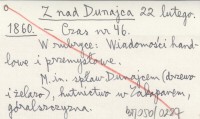 Z nad Dunajca 22 lutego.
1860. — Czas nr 46.
W rubryce: Wiadomości hand-
lowe i przemysłowe.
M.in. spław Dunajcem (drzewo
i żelazo), hutnictwo w Zakopanem,
góralszczyzna.